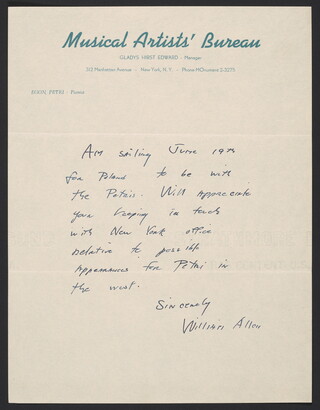 Musical Artists' Bureau
GLADYS HIRST EDWARD · Manager
Madison Avenue · New York, N. Y. · Phone
EGON PETRI · Pianist
Am sailing June 19th
for Poland to be with
the Petris. Will appreciate
your keeping in touch
with New York office
relative to possible
appearances for Petri in
the west.
Sincerely
William Allen